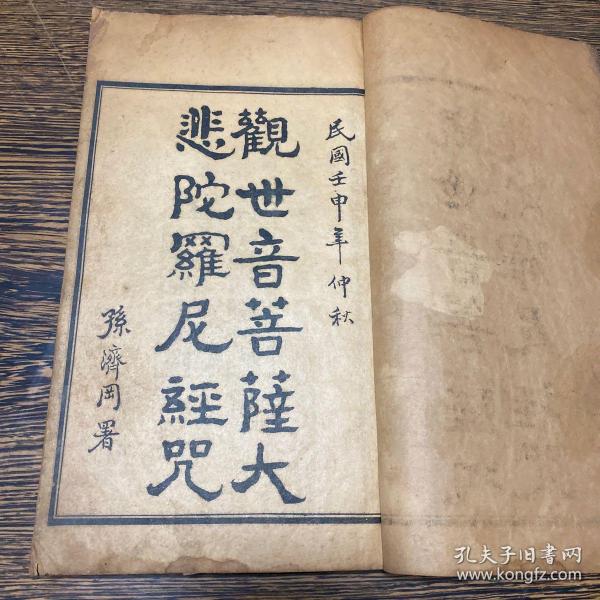 民國壬申年 仲秋
觀世音菩薩大
悲陀羅尼經咒
孫濟岡署
孔夫子旧书网
www.kongfz.com